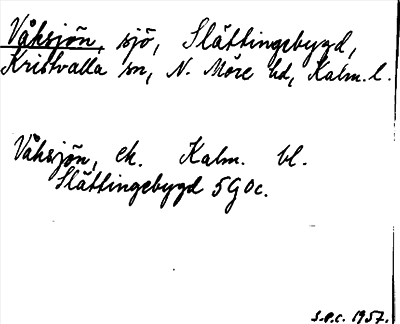 Våksjön, sjö, Slättingebygd,
Kristvalla sn, N. Möre hd, Kalm. l.
Våksjön, ek. Kalm. bl.
Slättingebygd 5G0c.
s.p.c. 1957.